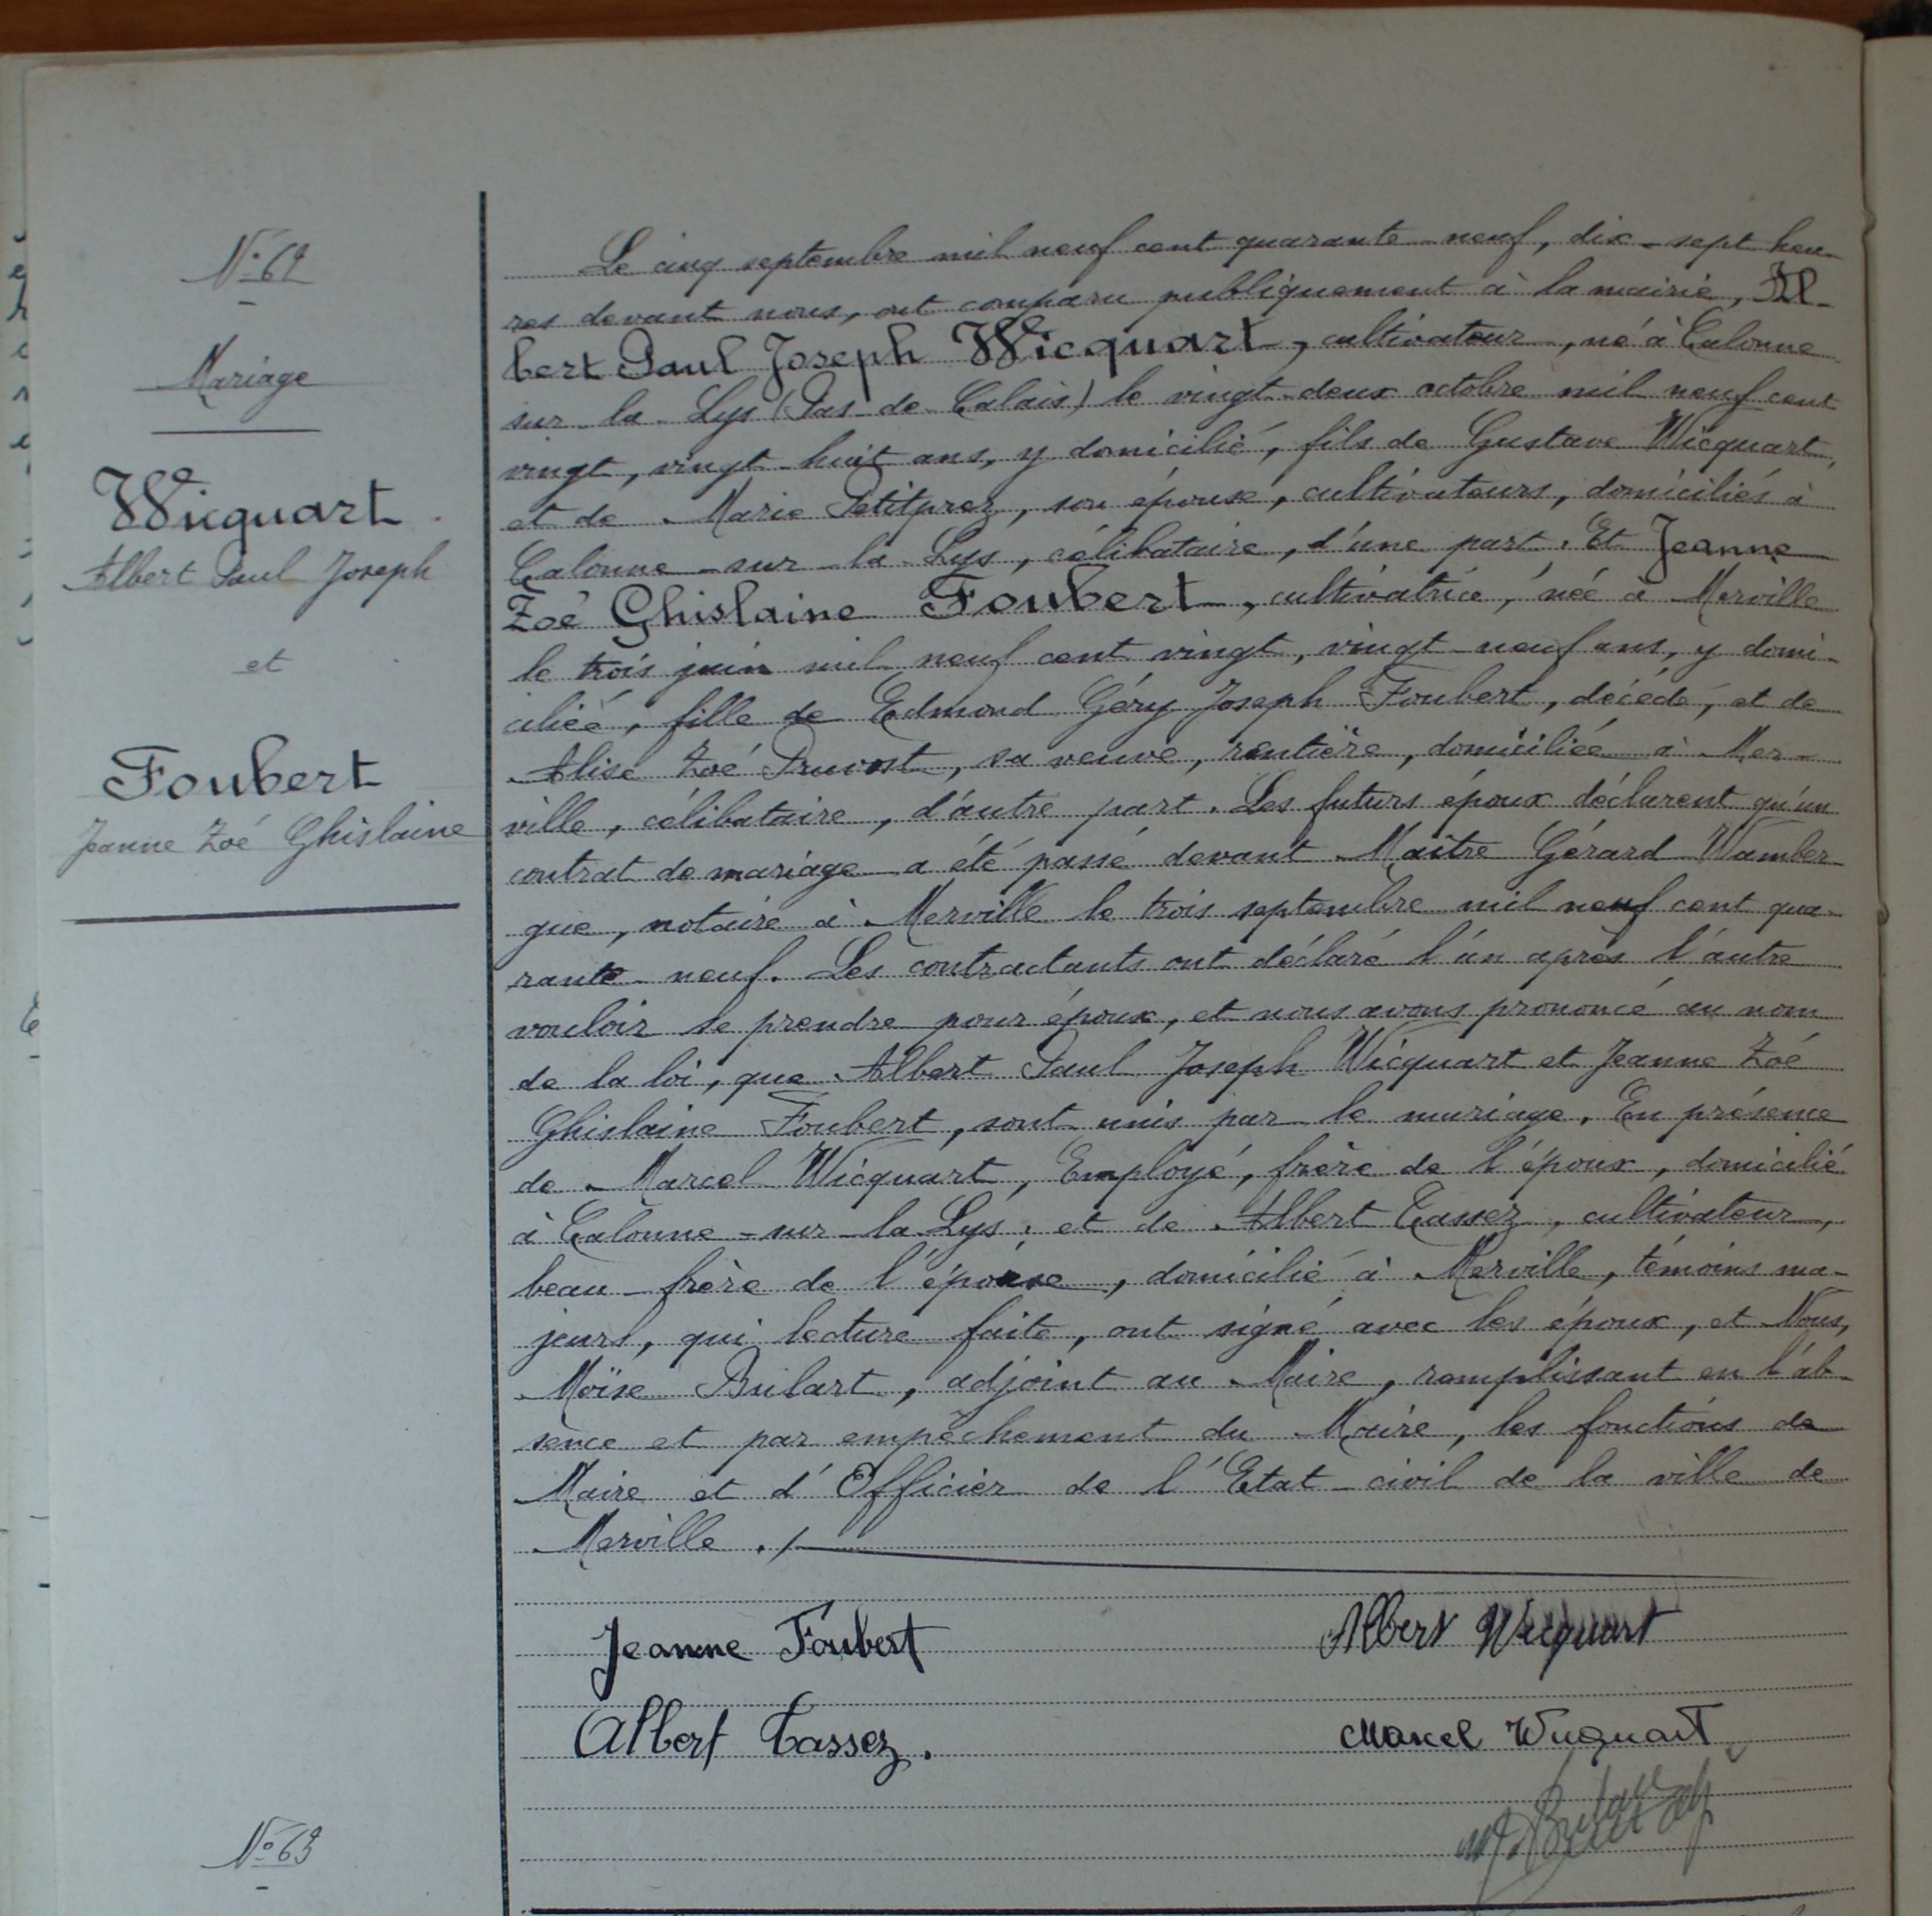 N° 62
Mariage
Wicquart
Albert Paul Joseph
et
Foubert
Jeanne Zoé Ghislaine
Le cinq septembre mil neuf cent quarante-neuf, dix-sept heu-
res devant nous, ont comparu publiquement à la mairie, Al-
bert Paul Joseph Wicquart, cultivateur, né à Calonne
sur la Lys (Pas-de-Calais) le vingt-deux octobre mil neuf cent
vingt, vingt-huit ans, y domicilié, fils de Gustave Wicquart,
et de Marie Petitprez, son épouse, cultivateurs, domiciliés à
Calonne-sur-la-Lys, célibataire, d'une part. Et Jeanne
Zoé Ghislaine Foubert, cultivatrice, née à Merville
le trois juin mil neuf cent vingt, vingt-neuf ans, y domi-
ciliée, fille de Edmond Géry Joseph Foubert, décédé, et de
Alise Zoé Pruvost, sa veuve, rentière, domiciliée à Mer-
ville, célibataire, d'autre part. Les futurs époux déclarent qu'un
contrat de mariage a été passé devant Maître Gérard Wamber-
gue, notaire à Merville le trois septembre mil neuf cent qua-
rante-neuf. Les contractants ont déclaré l'un après l'autre
vouloir se prendre pour époux, et nous avons prononcé au nom
de la loi, que Albert Paul Joseph Wicquart et Jeanne Zoé
Ghislaine Foubert, sont unis par le mariage. En présence
de Marcel Wicquart, Employé, frère de l'époux, domicilié
à Calonne-sur-la-Lys; et de Albert Tassez, cultivateur,
beau-frère de l'épouse, domicilié à Merville, témoins ma-
jeurs, qui lecture faite, ont signé avec les époux, et Nous,
Moïse Brilart, adjoint au Maire, remplissant en l'ab-
sence et par empêchement du Maire, les fonctions de
Maire et d'Officier de l'Etat-civil de la ville de
Merville ./
Jeanne Foubert
Albert Wicquart
Albert Tassez.
Marcel Wicquart
N° 63